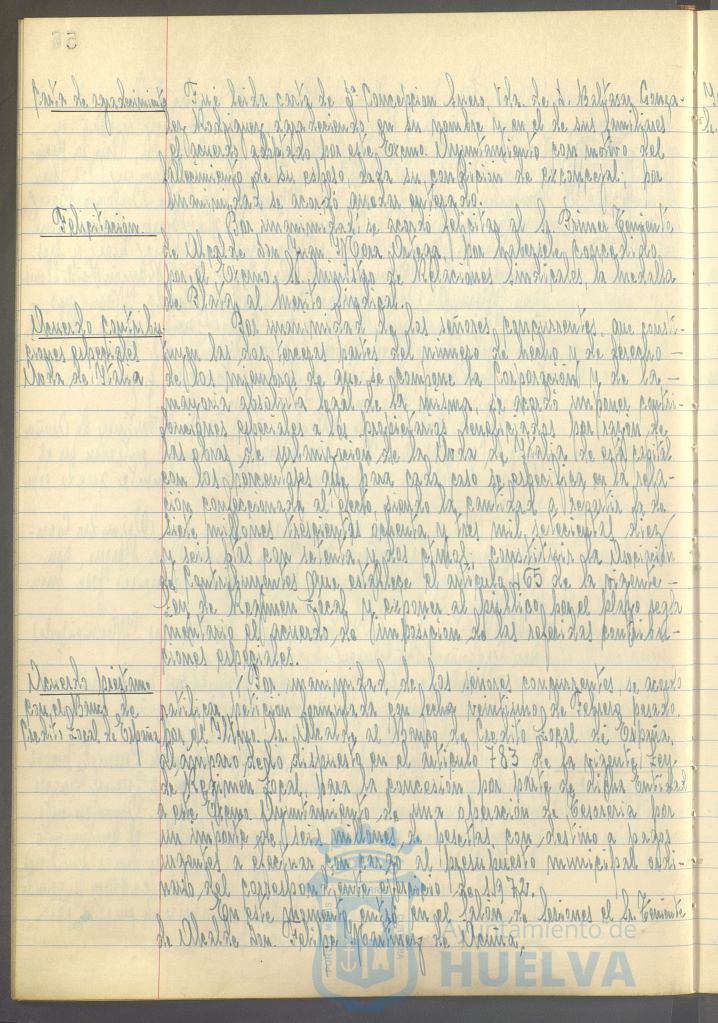 56
Carta de agradecimiento
Fué leida carta de Dª Concepcion Suero, Vda. de D. Baltasar Gonza-
lez Rodriguez agradeciendo en su nombre y en el de sus familiares
el acuerdo adoptado por este Excmo. Ayuntamiento con motivo del
fallecimiento de su esposo dada su condicion de exconcejal, por
unanimidad se acordó quedar enterado.
Felicitacion.
Por unanimidad se acordó felicitar al Sr. Primer Teniente
de Alcalde Don Juan Mora Ortega, por habersele concedido
por el Excmo. Sr. Ministro de Relaciones Sindicales, la Medalla
de Plata al Merito Sindical.
Acuerdo contribu-
ciones especiales
Avda de Italia
Por unanimidad de los señores concurrentes, que consti-
tuyen las dos terceras partes del número de hecho y de derecho
de los miembros de que se compone la Corporación y de la
mayoria absoluta legal de la misma, se acordó imponer contri-
buciones especiales a los propietarios beneficiados por razon de
las obras de urbanizacion de la Avda de Italia de esta capital
con los porcentajes que para cada caso se especifica en la rela-
ción confeccionada al efecto, siendo la cantidad a repartir la de
siete millones trescientas ochenta y tres mil, setecientas diez
y seis ptas con setenta y dos ctmos; constituir la Asociación
de Contribuyentes que establece el articulo 465 de la vigente
Ley de Regimen Local y exponer al público por el plazo regla
mentario el acuerdo de imposicion de las referidas contribu-
ciones especiales.
Acuerdo préstamo
con el Banco de
Credito Local de España
Por unanimidad, de los señores concurrentes se acordó
ratificar peticion formulada con fecha veintiuno de Febrero pasado.
por el Iltmo. Sr. Alcalde al Banco de Credito Local de España,
al amparo de lo dispuesto en el articulo 783 de la vigente Ley
de Regimen Local, para la concesión por parte de dicha Entidad
a este Excmo Ayuntamiento de una operación de Tesoreria por
un importe de seis millones de pesetas con destino a pagos
urgentes a efectuar con cargo al presupuesto municipal ordi-
nario del correspondiente ejercicio de 1.972.
En este momento entró en el Salón de Sesiones el Sr. Teniente
de Alcalde Don. Felipe Martinez de Acuña.
Ayuntamiento de
HUELVA